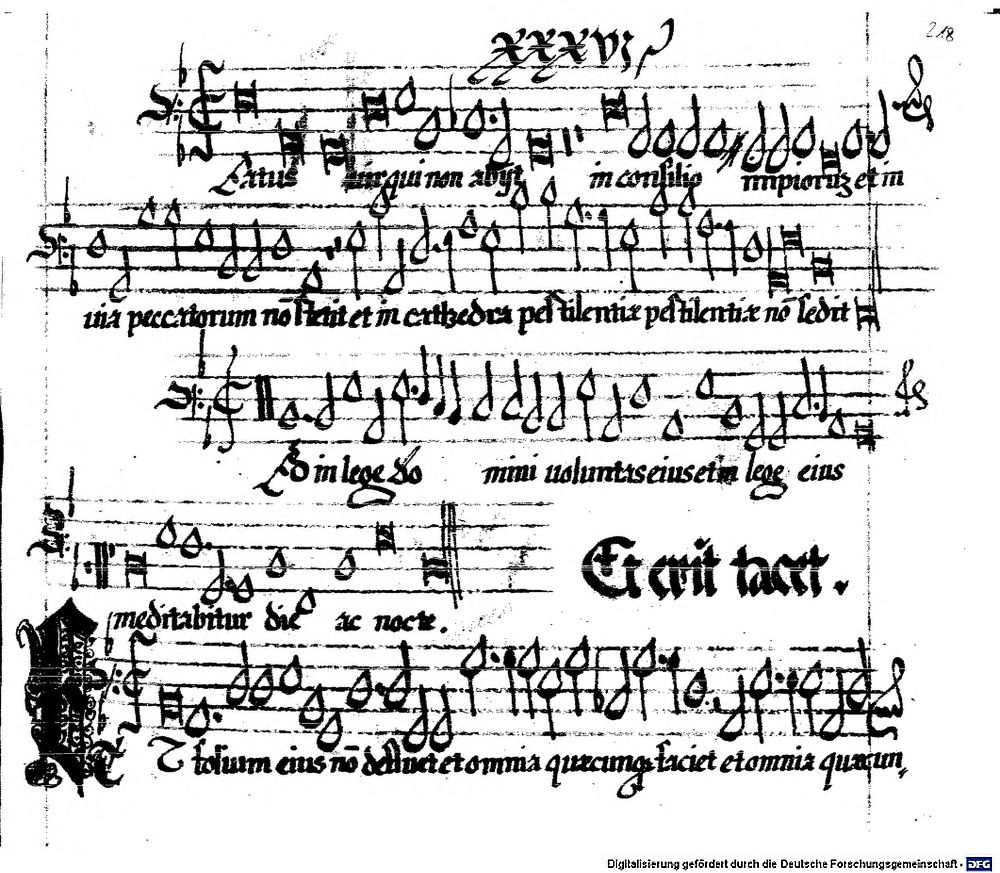 218
XXXVI
Eatus uir qui non abijt in consilio impioruz et in
uia peccatorum nō stetit et in cathedra pestilentiæ pestilentiæ nō sedit
Ed in lege do mini uoluntas eius et in lege eius
meditabitur die ac nocte.
Et erit tacet.
Et folium eius nō defluet et omnia quæcunqz faciet et omnia quæcun,
Digitalisierung gefördert durch die Deutsche Forschungsgemeinschaft - DFG